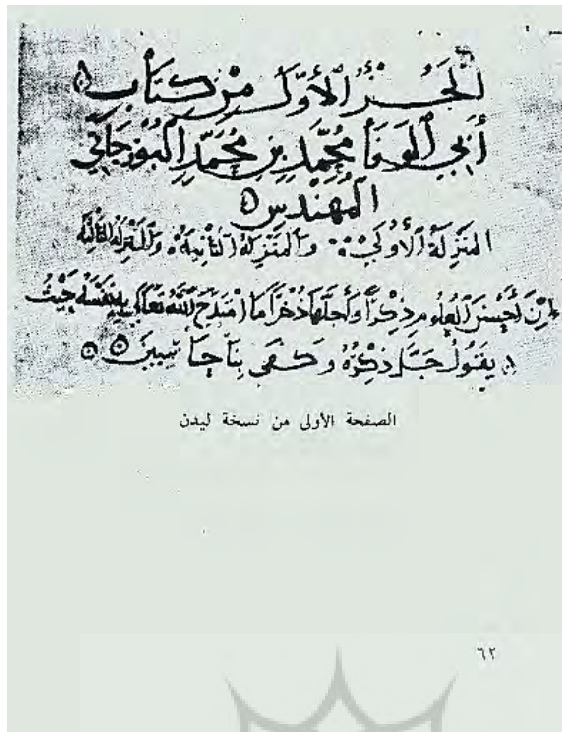 الجُزْءُ الأَوَّلُ مِنْ كِتَابِ
أَبِي الوَفَا مُحَمَّدِ بن مُحَمَّدِ البُوزجَانِي
المُهَنْدِس
المَنزِلَةُ الأُولَى وَالمَنزِلَةُ الثَّانِيَة وَالمَنْزِلَةُ الثَّالِثَة
إِنَّ أَحْسَنَ العُلُومِ ذِكْرًا وَأَجَلَّهَا ذُخْرًا مَا امْتَدَحَ اللَّهُ تَعَالَى بِهِ نَفْسَهُ حَيْثُ
يَقُولُ جَلَّ ذِكْرُهُ وَكَفَى بِنَا حَاسِبِينَ
الصفحة الأولى من نسخة ليدن
٦٢